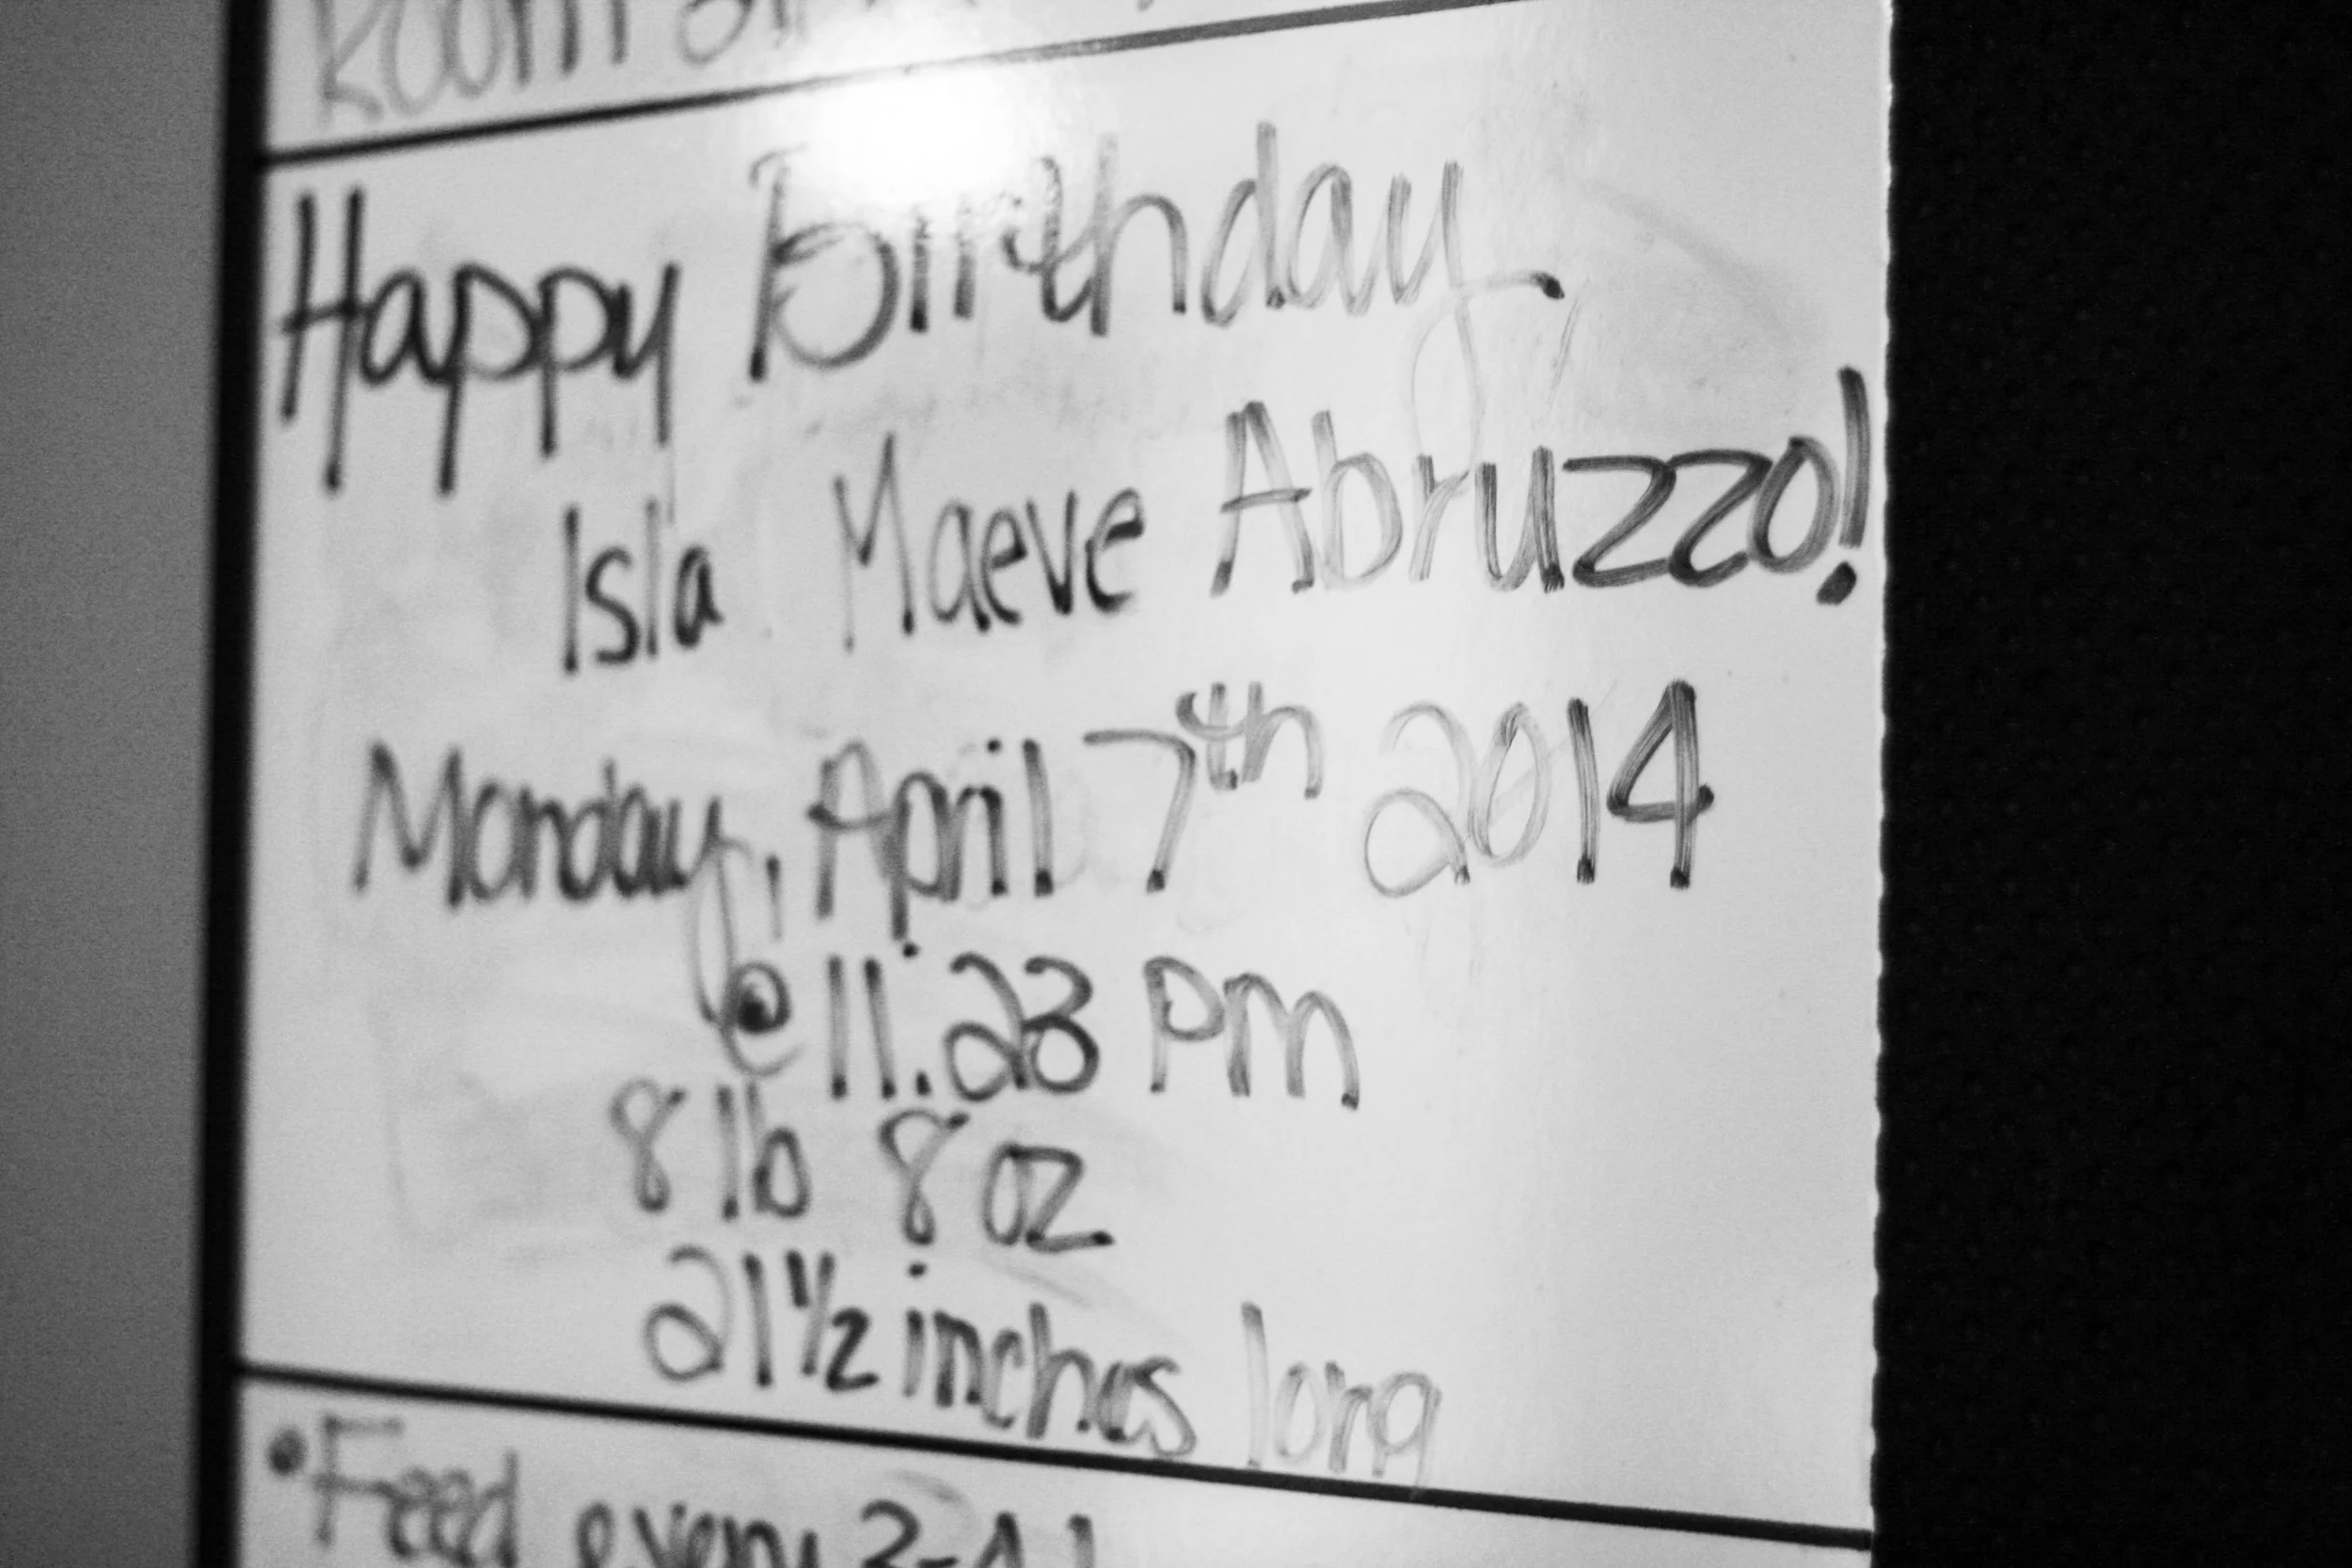 Room
Happy Birthday
Isla Maeve Abruzzo!
Monday, April 7th 2014
@ 11:23 PM
8 lb 8 oz
21 1/2 inches long
• Feed every